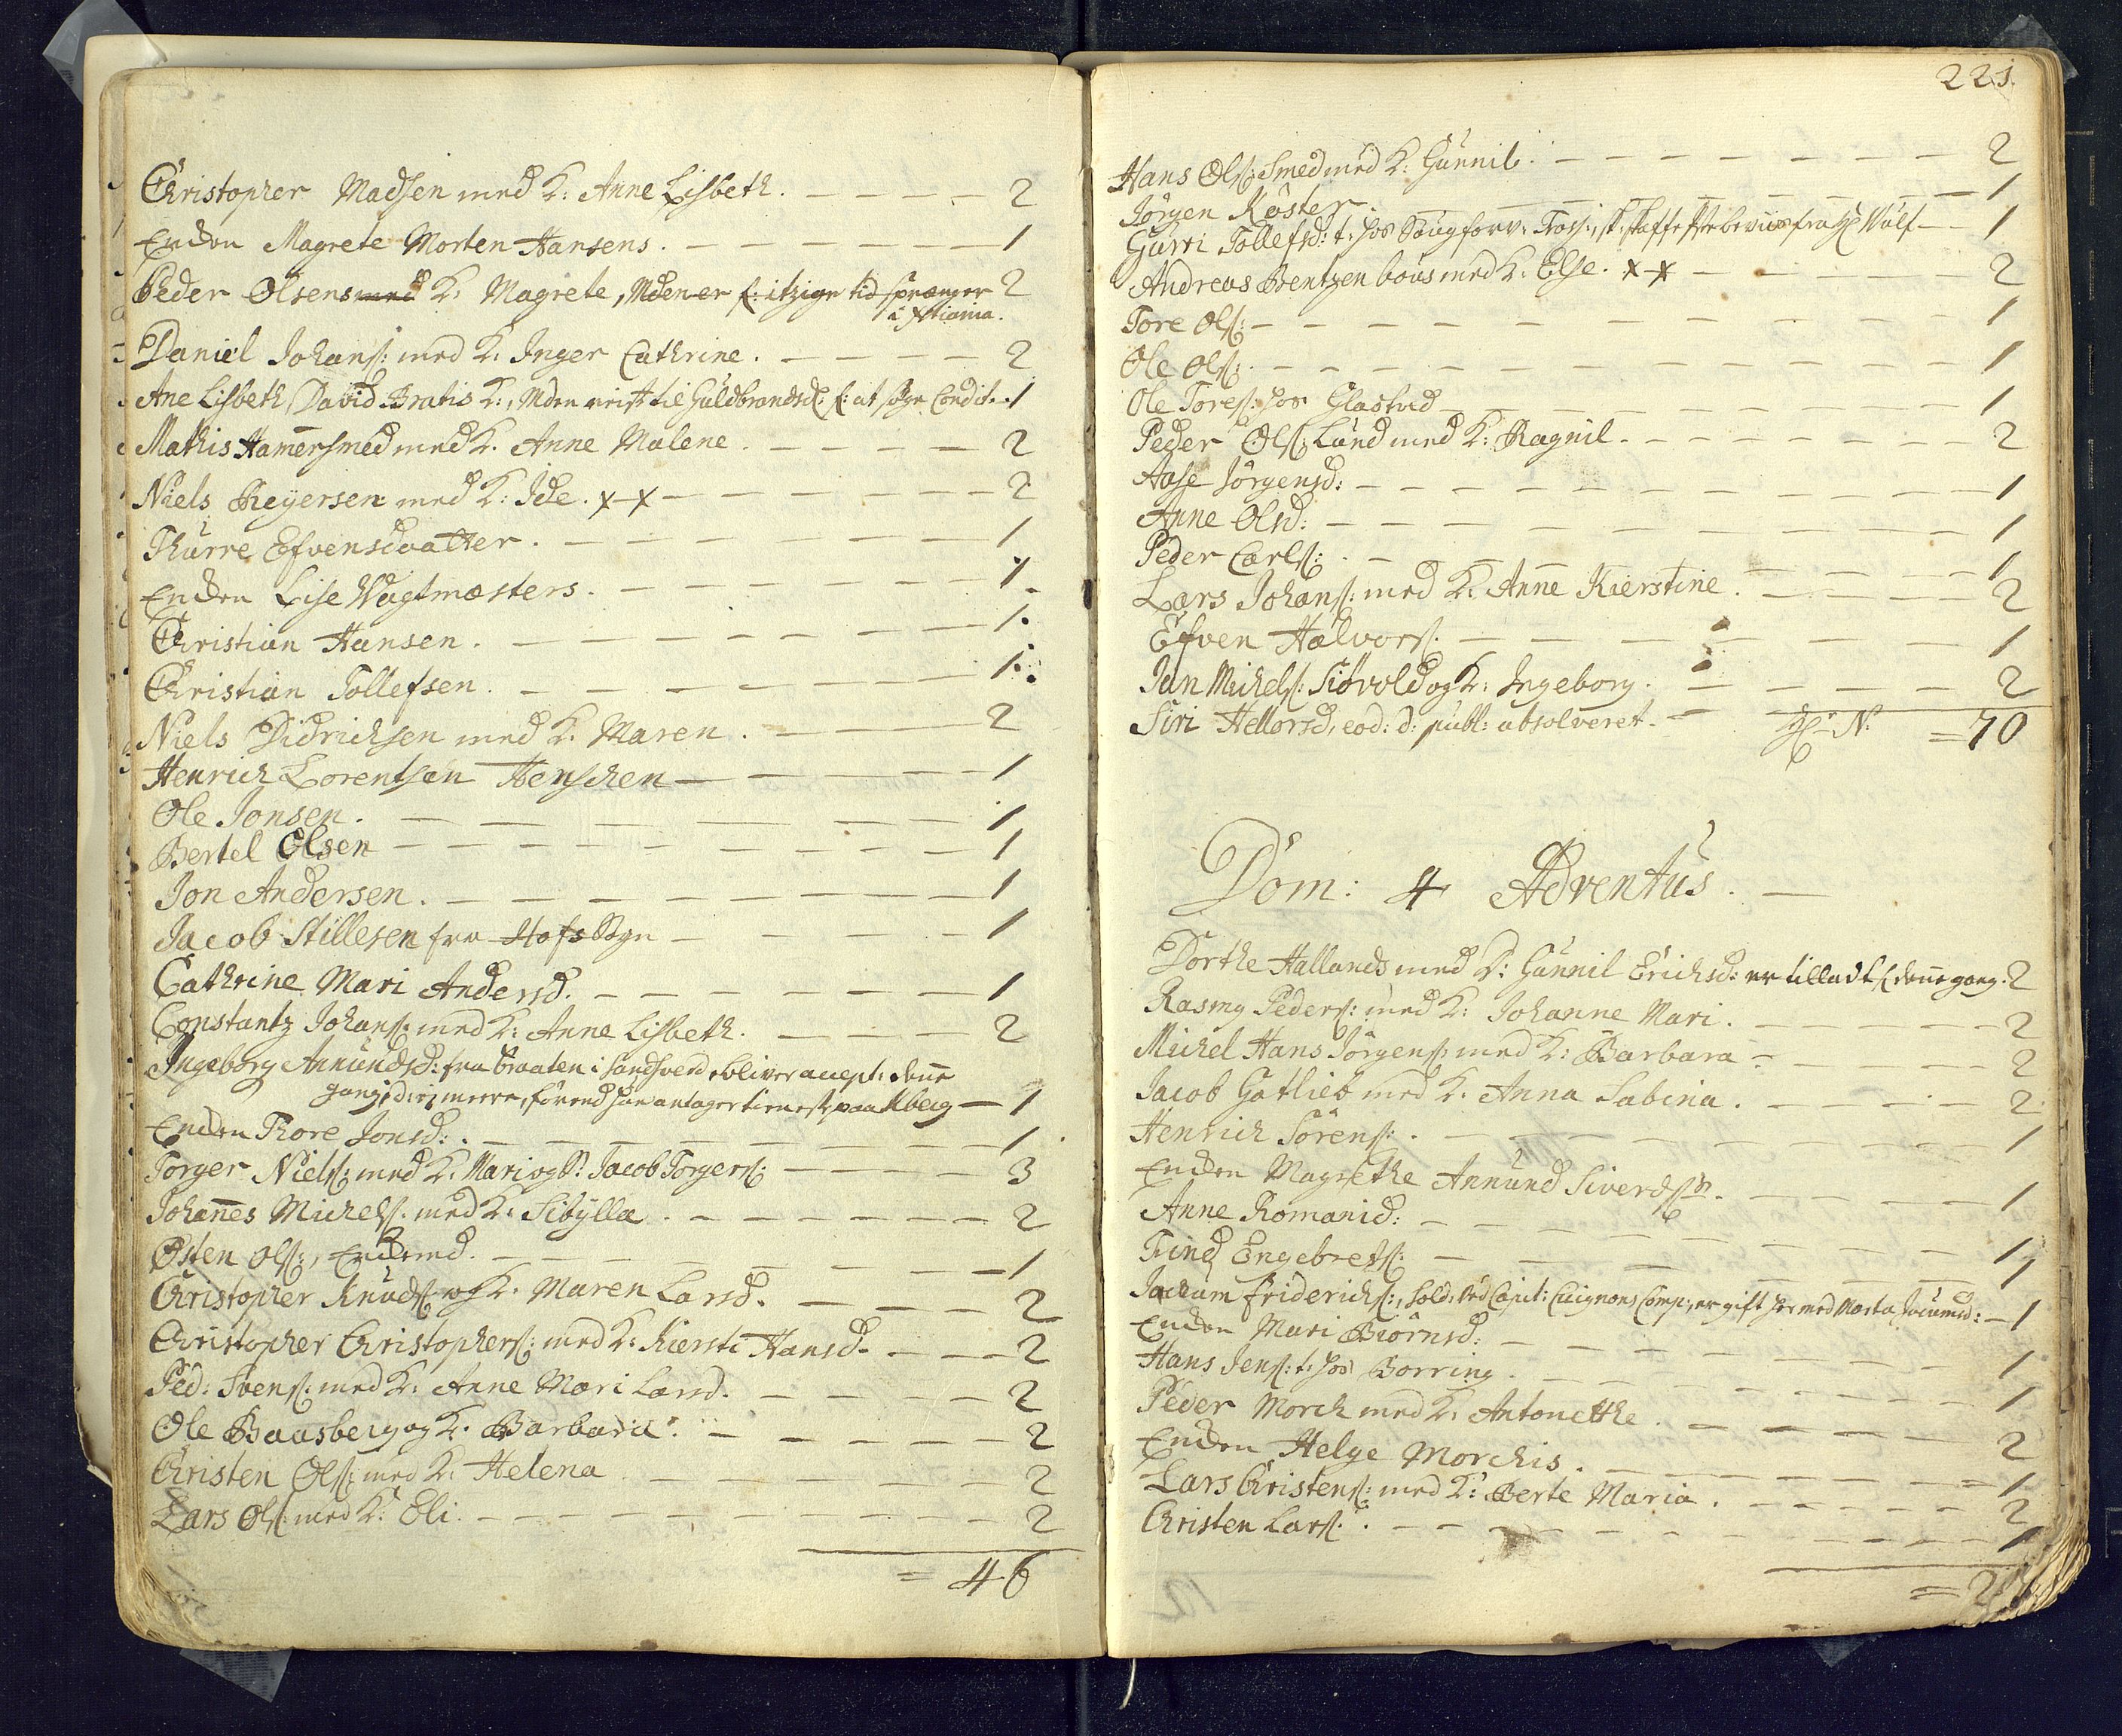 Christopher Madsen med K: Anne Lisbeth. 2
Enchen Magrete Morten Hansens. 1
Peder Olsens med K: Magrete, Mden er f: itzige tid sprænger 2
i Xtiania.
Daniel Johans: med K: Inger Cathrine. 2
Ane Lisbeth David Bratis K:, Mden reist til Guldbrandsd: f: at søge Condit. 1
Mathis Hamersmed med K. Anne Malene. 2
Niels Reyersen med K: Ide. x-x 2
Thurre Efvensdaatter. 1
Enchen Lise Wagtmæsters. 1
Christian Hansen. 1
Christian Tollefsen. 1
Niels Didrichsen med K. Maren. 2
Henrich Lorentsen Henschen 1
Ole Jonsen. 1
Bertel Olsen 1
Jon Andersen. 1
Jacob Stillesen fra Hofs 1
Cathrine Mari Andersd. 1
Constantz Johans: med K: Anne Lisbeth. 2
Ingeborg Amundsd: fra Braaten i Sandsverd bliver accept: denne
gang, d: ej meere, førend hun antager tieneste paa Kberg 1
Enchen Thore Jonsd: 1
Torger Niels: med K: Mari og S: Jacob Torgers: 3
Johannes Michels: med K: Sibylla. 2
Østen Ols:, Enchemd. 1
Christopher Knuds: og K: Maren Larsd. 2
Christopher Christophers: med K: Kiersti Hansd. 2
Ped: Svens: med K: Anne Mari Larsd. 2
Ole Baasberg og K. Barbara. 2
Christen Ols: med K: Helena 2
Lars Ols: med K: Eli. 2
= 46
221.
Hans Ols: Smed med K: Gunnil. 2
Jørgen Køster. 1
Gurri Tollefsd: t: hos Bougforv: st: skaffe beviis fra Hr Wulf 1
Andreas Bentzen bøus med K: Else. x-x 2
Tore Ols: 1
Ole Ols: 1
Ole Tores: hos Glastad 1
Peder Ols: Lund med K: Ragnil. 2
Aase Jørgensd: 1
Anne Olsd: 1
Peder Carls: 1
Lars Johans: med K: Anne Kierstine. 2
Efven Halvors: 1
Jan Michels: Siøvold og K: Ingeborg. 2
Siri Hellorsd, eod: d: publ: absolveret. N: = 70
Dom: 4 Adventus.
Dorthe Hallands med K: Gunnil Erichsd: er tilladt f denne gang. 2
Rasmg Peders: med K: Johanne Mari. 2
Michel Hans Jørgens: med K: Barbara 2
Jacob Gotlieb med K: Anna Sabina. 2
Henrich Sørens: 1
Enchen Magrethe Annund Siverds. 1
Anne Romanid: 1
Find Engebrets: 1
Jochum Friderichs:, Sold: ved Capit: Cuignons Comp:, er gift her med Marta Jocumsd: 1
Enchen Mari Biørnsd: 1
Hans Jens: t: hos Borring. 1
Peder Morch med K: Antonethe. 2
Enchen Helge Morchis. 1
Lars Christens: med K: Berte Maria. 2
Christen Lars: 1